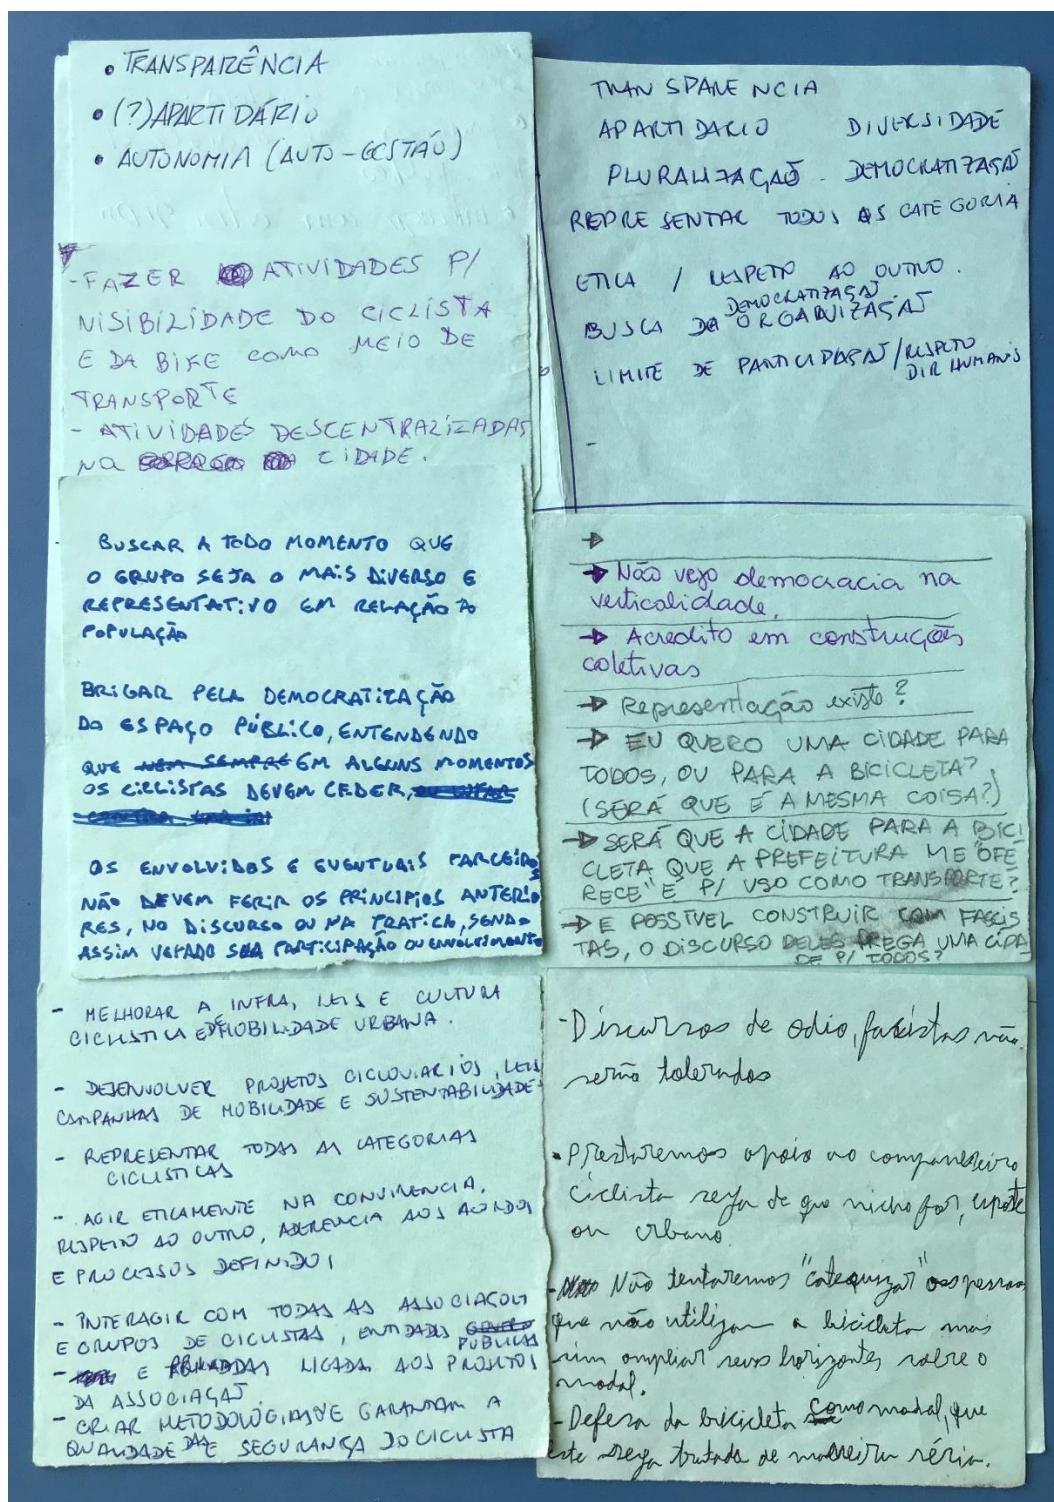 • TRANSPARÊNCIA
• (?) APARTIDÁRIO
• AUTONOMIA (AUTO-GESTÃO)
- FAZER ATIVIDADES P/
VISIBILIDADE DO CICLISTA
E DA BIKE COMO MEIO DE
TRANSPORTE
- ATIVIDADES DESCENTRALIZADAS
NA CIDADE.
BUSCAR A TODO MOMENTO QUE
O GRUPO SEJA O MAIS DIVERSO E
REPRESENTATIVO EM RELAÇÃO À
POPULAÇÃO
BRIGAR PELA DEMOCRATIZAÇÃO
DO ESPAÇO PÚBLICO, ENTENDENDO
QUE NEM SEMPRE EM ALGUNS MOMENTOS
OS CICLISTAS DEVEM CEDER,
OS ENVOLVIDOS E EVENTUAIS PARCEIROS
NÃO DEVEM FERIR OS PRINCIPIOS ANTERIO
RES, NO DISCURSO OU NA PRATICA, SENDO
ASSIM VETADO SUA PARTICIPAÇÃO OU ENVOLVIMENTO
- MELHORAR A INFRA, LEIS E CULTURA
CICLISTICA E DE MOBILIDADE URBANA.
- DESENVOLVER PROJETOS CICLOVIARIOS, LEIS
CAMPANHAS DE MOBILIDADE E SUSTENTABILIDADE
- REPRESENTAR TODAS AS CATEGORIAS
CICLISTICAS
- AGIR ETICAMENTE NA CONVIVENCIA,
RESPEITO AO OUTRO, ADERENCIA AOS ACORDOS
E PROCESSOS DEFINIDOS
- INTERAGIR COM TODAS AS ASSOCIAÇOES
E GRUPOS DE CICLISTAS, ENTIDADES PÚBLICAS
E PRIVADAS LIGADAS AOS PROJETOS
DA ASSOCIAÇAÕ
- CRIAR METODOLOGIAS QUE GARANTAM A
QUALIDADE E SEGURANÇA DO CICLISTA
TRANSPARENCIA
APARTIDARIO DIVERSIDADE
PLURALIZAÇAÕ - DEMOCRATIZAÇAÕ
REPRESENTAR TODOS AS CATEGORIA
ETICA / RESPEITO AO OUTRO.
DEMOCRATIZAÇAÕ
BUSCA DE ORGANIZAÇAÕ
LIMITE DE PARTICIPAÇAÕ / RESPEITO
DIR HUMANOS
-
→
→ Não vejo democracia na
verticalidade.
→ Acredito em construções
coletivas
→ Representação existe?
→ EU QUERO UMA CIDADE PARA
TODOS, OU PARA A BICICLETA?
(SERÁ QUE É A MESMA COISA?)
→ SERÁ QUE A CIDADE PARA A BICI
CLETA QUE A PREFEITURA ME "OFE
RECE" É P/ USO COMO TRANSPORTE?
→ É POSSÍVEL CONSTRUIR COM FASCIS
TAS, O DISCURSO DELES PREGA UMA CIDA
DE P/ TODOS?
- Discursos de odio, fascistas não
serão tolerados
• Prestaremos apoio ao companheiro
ciclista seja de que nicho for, esporte
ou urbano.
- Não tentaremos "catequizar" as pessoas
que não utilizam a bicicleta mas
sim ampliar seus horizontes sobre o
modal.
- Defesa da bicicleta como modal, que
este seja tratado de maneira séria.